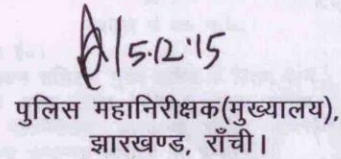 15.12.15
पुलिस महानिरीक्षक(मुख्यालय),
झारखण्ड, राँची।